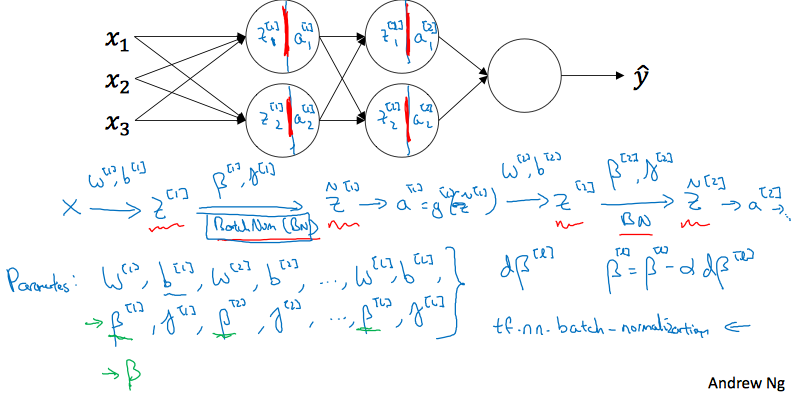 x₁
x₂
x₃
z₁^[1] a₁^[1]
z₂^[1] a₂^[1]
z₁^[2] a₁^[2]
z₂^[2] a₂^[2]
ŷ
X → (w^[1], b^[1]) z^[1] → (β^[1], γ^[1]) (Batch Norm (BN)) z̃^[1] → a^[1] = g^[1](z̃^[1]) → (w^[2], b^[2]) z^[2] → (β^[2], γ^[2]) (BN) z̃^[2] → a^[2] → ...
Parameters: w^[1], b^[1], w^[2], b^[2], ..., w^[L], b^[L], } dβ^[l] β^[l] = β^[l] - α dβ^[l]
→ β^[1], γ^[1], β^[2], γ^[2], ..., β^[L], γ^[L] } tf.nn.batch-normalization ←
→ β
Andrew Ng